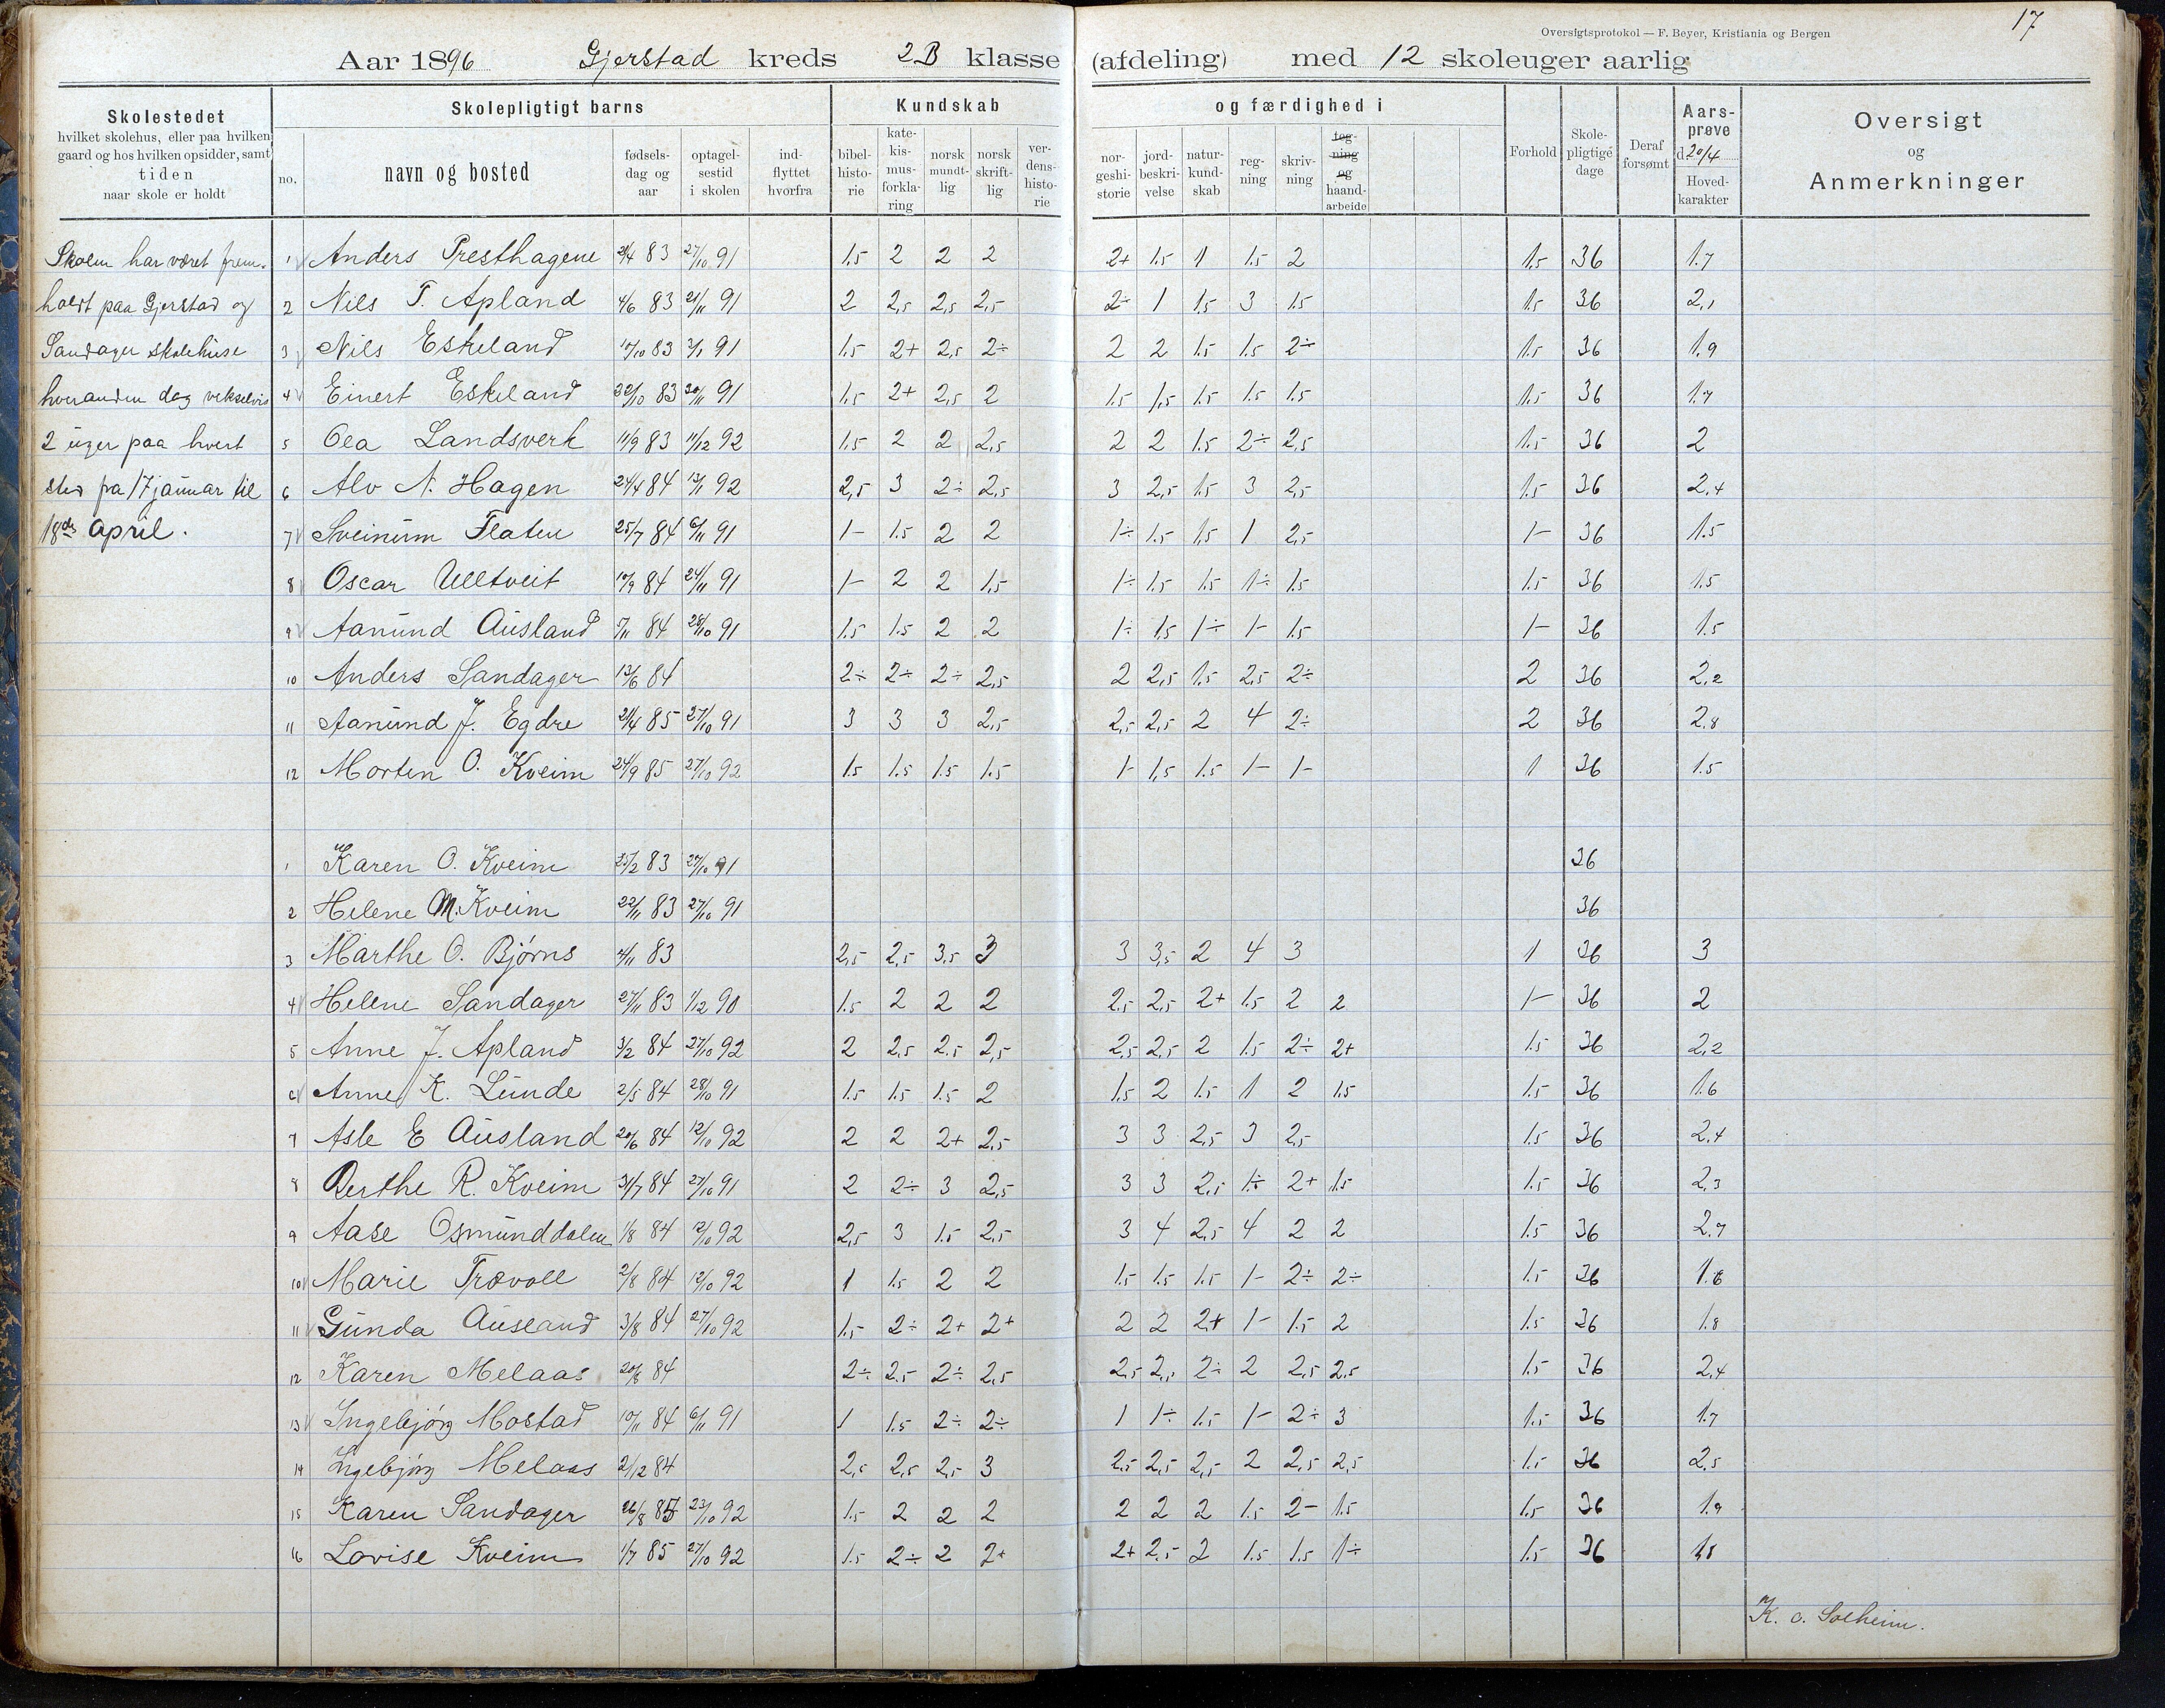 17
Oversigtsprotokol — F. Beyer, Kristiania og Bergen
Aar 1896 Gjerstad kreds 2B klasse (afdeling) med 12 skoleuger aarlig
Skolestedet
hvilket skolehus, eller paa hvilken
gaard og hos hvilken opsidder, samt
tiden
naar skole er holdt
Skolepligtigt barns
no.
navn og bosted
fødsels-
dag og
aar
optagel-
sestid
i skolen
ind-
flyttet
hvorfra
Kundskab
bibel-
histo-
rie
kate-
kis-
mus-
forkla-
ring
norsk
mundt-
lig
norsk
skrift-
lig
ver-
dens-
histo-
rie
og færdighed i
nor-
geshi-
storie
jord-
beskri-
velse
natur-
kund-
skab
reg-
ning
skriv-
ning
teg-
ning
og
haand-
arbeide
Forhold
Skole-
pligtige
dage
Deraf
forsømt
Aars-
prøve
d. 20/4
Hoved-
karakter
Oversigt
og
Anmerkninger
Skolen har været frem-
holdt paa Gjerstad og
Sandager skolehuse
hveranden dag vekselvis
2 uger paa hvert
sted fra 17 januar til
18de april.
1 Anders Presthagene 21/4 83 27/10 91 1.5 2 2 2 2+ 1.5 1 1.5 2 1.5 36 1.7
2 Nils T. Apland 4/6 83 21/11 91 2 2,5 2,5 2,5 2÷ 1 1.5 3 1.5 1.5 36 2,1
3 Nils Eskeland 17/10 83 3/1 91 1.5 2+ 2,5 2÷ 2 2 1.5 1.5 2÷ 1.5 36 1.9
4 Einert Eskeland 22/10 83 20/11 91 1.5 2+ 2,5 2 1.5 1,5 1.5 1.5 1.5 1.5 36 1.7
5 Olea Landsverk 11/9 83 11/12 92 1.5 2 2 2,5 2 2 1.5 2÷ 2,5 1.5 36 2
6 Alv N. Hagen 24/4 84 13/1 92 2,5 3 2÷ 2,5 3 2,5 1.5 3 2,5 1.5 36 2,4
7 Sveinum Flaten 25/7 84 6/11 91 1- 1.5 2 2 1÷ 1.5 1,5 1 2,5 1- 36 1.5
8 Oscar Ulltveit 10/9 84 24/11 91 1- 2 2 1,5 1÷ 1.5 1.5 1÷ 1.5 1.5 36 1.5
9 Aanund Ausland 7/11 84 28/10 91 1.5 1.5 2 2 1÷ 1,5 1÷ 1- 1.5 1- 36 1.5
10 Anders Sandager 13/6 84 2÷ 2÷ 2÷ 2,5 2 2,5 1.5 2,5 2÷ 2 36 2,2
11 Aanund J. Egdre 21/4 85 27/10 91 3 3 3 2,5 2,5 2,5 2 4 2÷ 2 36 2,8
12 Morten O. Kveim 24/9 85 27/10 92 1.5 1.5 1.5 1.5 1- 1,5 1.5 1- 1- 1 36 1.5
1 Karen O. Kveim 25/2 83 27/10 91 36
2 Helene M. Kveim 22/11 83 27/10 91 36
3 Marthe O. Bjørns 4/11 83 2,5 2,5 3,5 3 3 3,5 2 4 3 1 36 3
4 Helene Sandager 27/11 83 1/12 90 1.5 2 2 2 2,5 2,5 2+ 1.5 2 2 1- 36 2
5 Anne J. Apland 3/2 84 27/10 92 2 2,5 2,5 2,5 2,5 2,5 2 1.5 2÷ 2+ 1.5 36 2,2
6 Anne K. Lunde 2/5 84 28/10 91 1.5 1.5 1.5 2 1.5 2 1.5 1 2 1.5 1.5 36 1.6
7 Asle E Ausland 20/6 84 12/10 92 2 2 2+ 2,5 3 3 2,5 3 2,5 1.5 36 2,4
8 Berthe R. Kveim 31/7 84 27/10 91 2 2÷ 3 2,5 3 3 2,5 1÷ 2+ 1.5 1.5 36 2,3
9 Aase Osmunddalen 1/8 84 12/10 92 2,5 3 1.5 2,5 3 4 2,5 4 2 2 1.5 36 2.7
10 Marie Trævoll 2/8 84 12/10 92 1 1.5 2 2 1.5 1.5 1.5 1- 2÷ 2÷ 1.5 36 1.6
11 Gunda Ausland 3/8 84 27/10 92 1.5 2÷ 2+ 2+ 2 2 2+ 1- 1.5 2 1.5 36 1.8
12 Karen Melaas 20/8 84 2÷ 2.5 2÷ 2,5 2,5 2,5 2÷ 2 2,5 2,5 1.5 36 2,4
13 Ingebjørg Mostad 10/11 84 6/11 91 1 1.5 2÷ 2÷ 1 1÷ 1.5 1- 2÷ 3 1.5 36 1.7
14 Ingebjørg Melaas 2/12 84 2,5 2,5 2,5 3 2,5 2,5 2,5 2 2,5 2,5 1.5 36 2,5
15 Karen Sandager 26/8 85 23/10 92 1.5 2 2 2 2 2 2 1.5 2- 1.5 1.5 36 1.9
16 Lovise Kveim 1/7 85 27/10 92 1.5 2÷ 2 2+ 2+ 2,5 2 1.5 1.5 1÷ 1.5 36 1,8
K. O. Solheim.